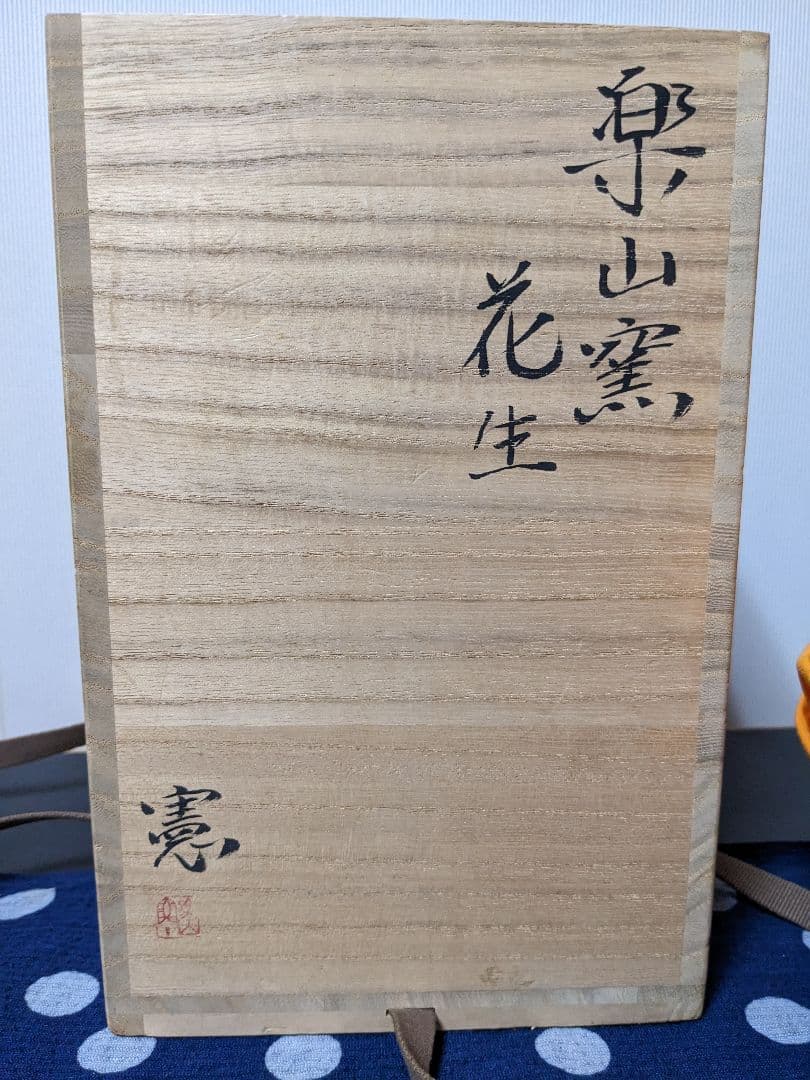 楽山窯
花生
憲